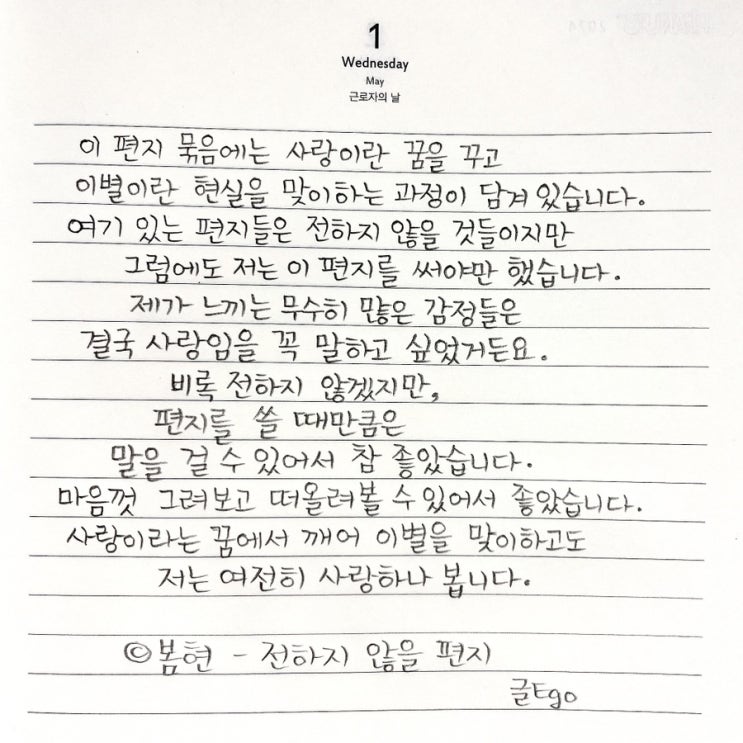 1
Wednesday
May
근로자의 날
이 편지 묶음에는 사랑이란 꿈을 꾸고
이별이란 현실을 맞이하는 과정이 담겨 있습니다.
여기 있는 편지들은 전하지 않을 것들이지만
그럼에도 저는 이 편지를 써야만 했습니다.
제가 느끼는 무수히 많은 감정들은
결국 사랑임을 꼭 말하고 싶었거든요.
비록 전하지 않겠지만,
편지를 쓸 때만큼은
말을 걸 수 있어서 참 좋았습니다.
마음껏 그려보고 떠올려볼 수 있어서 좋았습니다.
사랑이라는 꿈에서 깨어 이별을 맞이하고도
저는 여전히 사랑하나 봅니다.
©봄현 - 전하지 않을 편지
글Ego